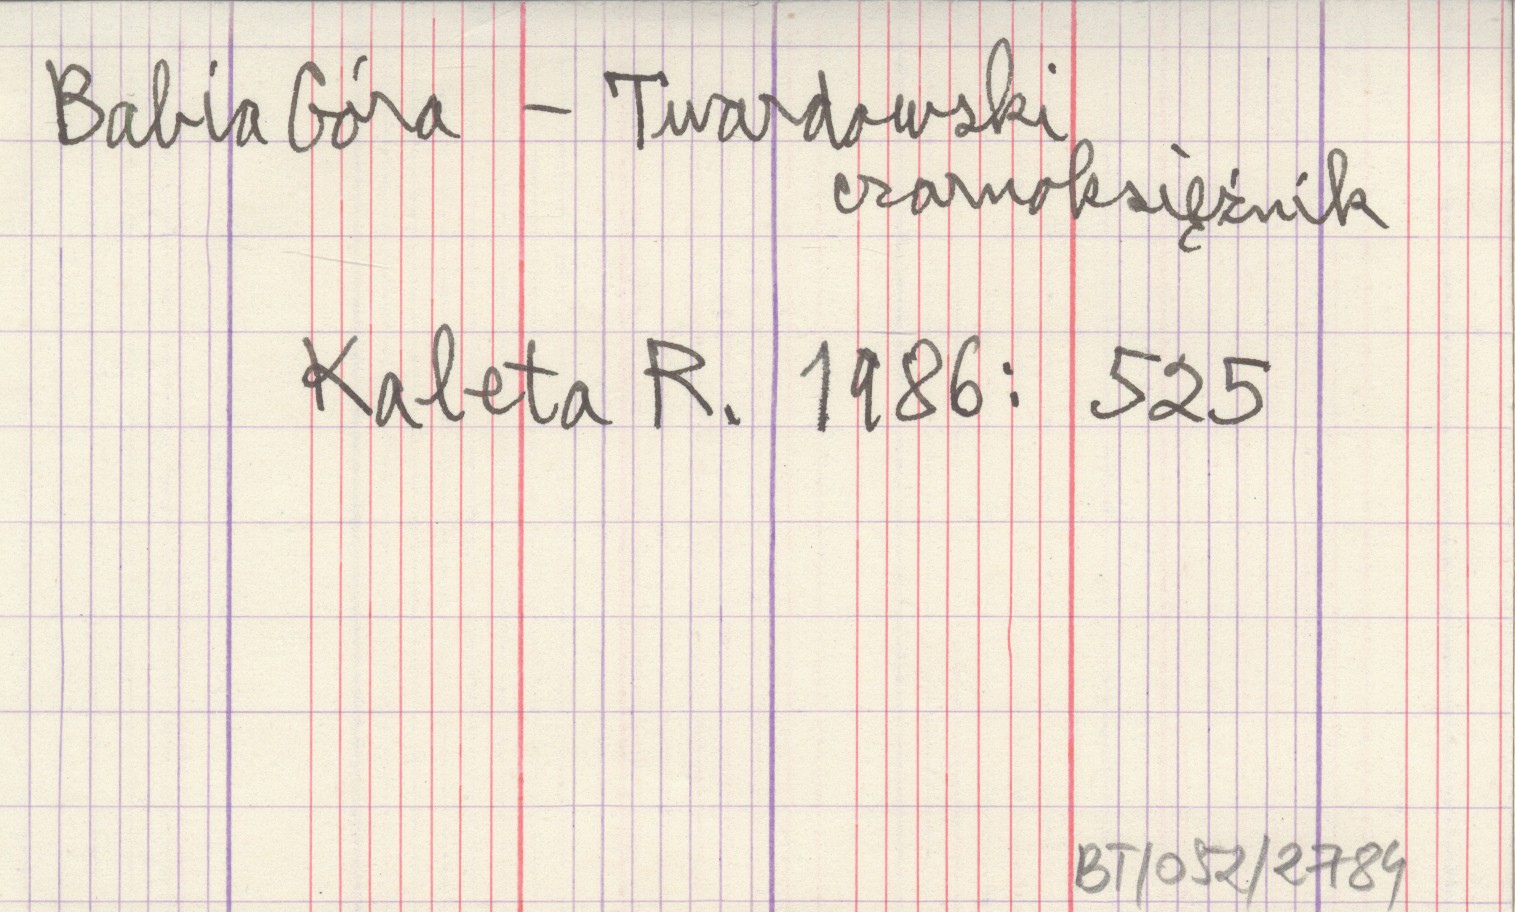 Babia Góra - Twardowski
czarnoksiężnik
Kaleta R. 1986: 525
BT/052/2784